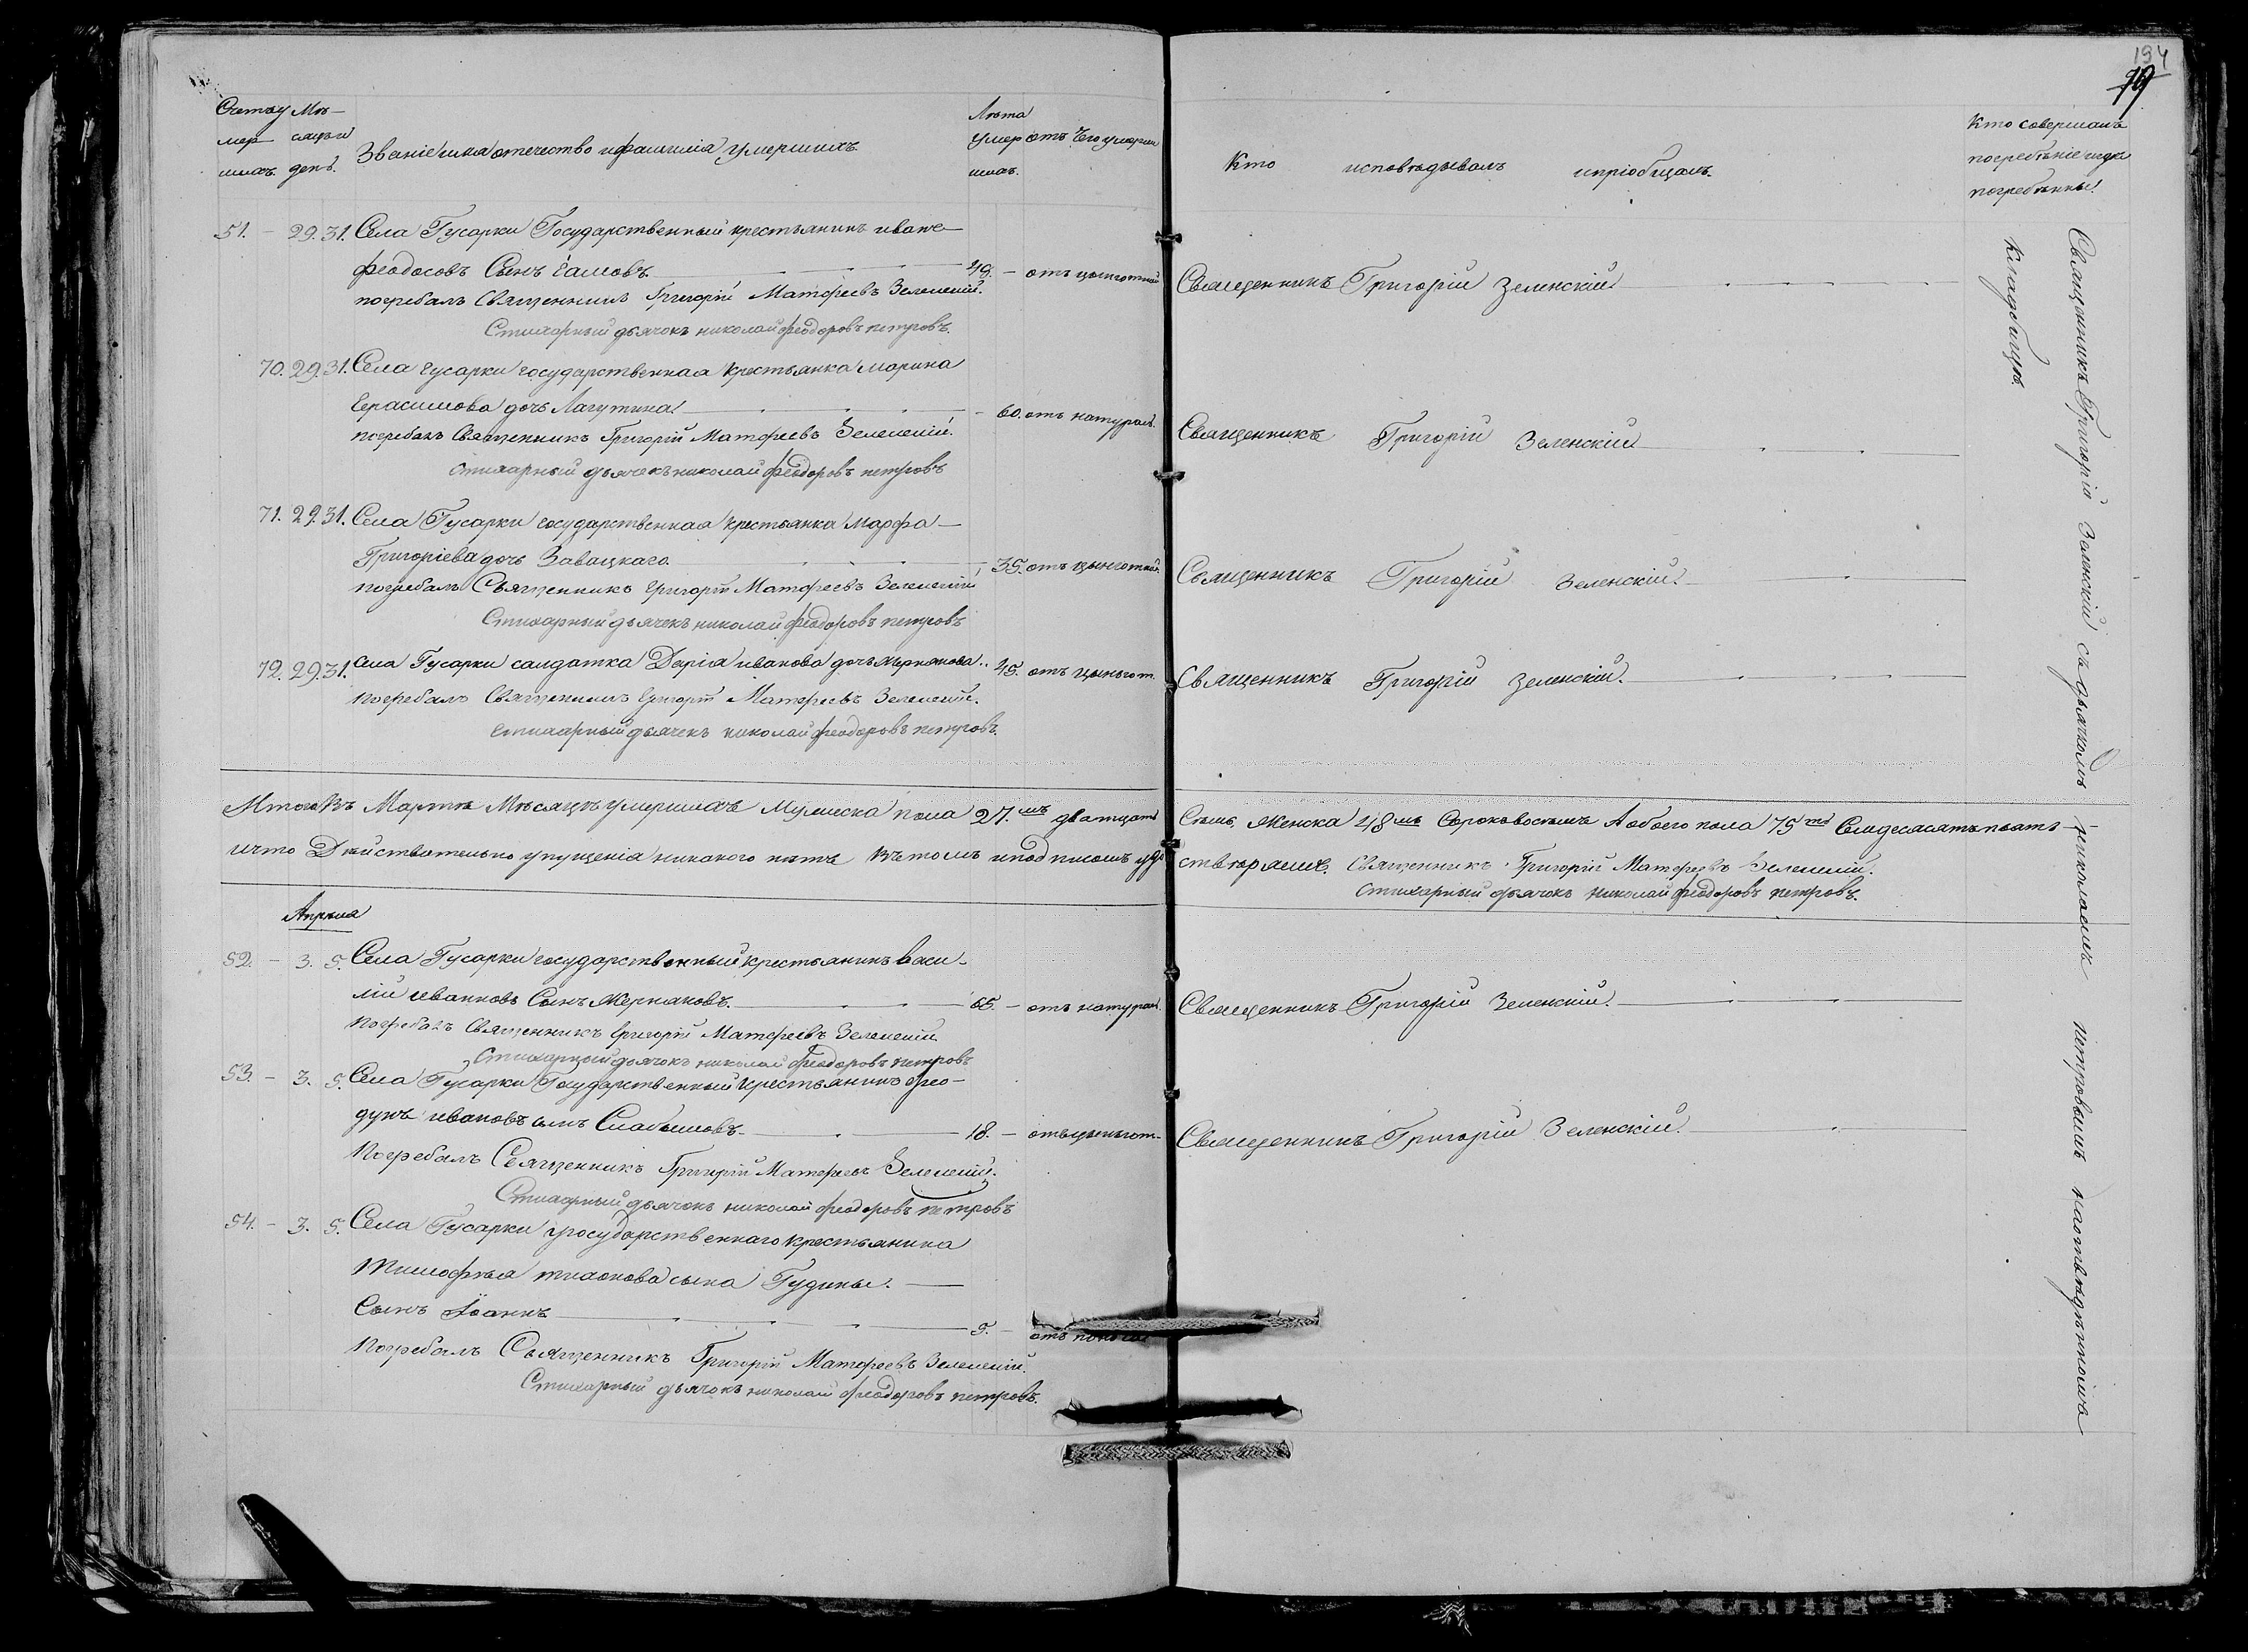 194
79
Счетъ у Мѣ-
мер сяцъ и
шихъ день.
Званіе имя отечество и фамилія умершихъ
Лѣта
умер
шихъ.
отъ Чего умерли
Кто исповѣдывалъ и пріобщалъ.
Кто совершалъ
погребѣніе и гдѣ
погребѣнны.
51. - 29. 31. Села Гусарки Государственный крестьянинъ иване
феодосовъ Сынъ 49. - отъ цынготной Священникъ Григорій Зеленскій.
погребалъ Священникъ Григорій Матфеевъ Зеленскій.
Стихарный дьячокъ николай феодоровъ петровъ.
70. 29. 31. Села Гусарки государственная крестьянка марина
Герасимова дочь Лагутина - 60. отъ натурал. Священникъ Григорій Зеленскій
погребалъ Священникъ Григорій Матфеевъ Зеленскій.
Стихарный дьячекъ николай феодоровъ петровъ
71. 29. 31. Села Гусарки государственная крестьянка марфа
Григоріева дочь Завацкаго - 35. отъ цынготной. Священникъ Григорій Зеленскій.
погребалъ Священникъ Григорій Матфеевъ Зеленскій
Стихарный дьячекъ николай феодоровъ петровъ
72. 29. 31. Села Гусарки салдатка Дарія иванова дочь 45. отъ цынгот. Священникъ Григорій Зеленскій.
погребалъ Священникъ Григорій Матфеевъ Зеленскій.
Стихарный дьячекъ николай феодоровъ петровъ.
Итого Въ Мартѣ Мѣсяцѣ умершихъ Мужеска пола 27.мъ дватцать Семь, Женска 48мъ Сороковосьмъ А обоего пола 75ть Семдесасятъ пять
и что Дѣйствительно упущенія никакого нѣтъ въ томъ и подписомъ удостверяемъ. Священникъ Григорій Матфеевъ Зеленскій.
Стихарный дьячокъ николай феодоровъ петровъ.
Апрѣля
52. - 3. 5. Села Гусарки государственный крестьянинъ васи-
лій ивановъ Сынъ Жерноковъ. 65. - отъ натурал. Священникъ Григорій Зеленскій.
погребалъ Священникъ Григорій Матфеевъ Зеленскій
Стихарный дьячокъ николай феодоровъ петровъ
53. - 3. 5. Села Гусарки Государственный крестьянинъ фео-
дулъ ивановъ сынъ 18. - отъ цынгот. Священникъ Григорій Зеленскій.
погребалъ Священникъ Григорій Матфеевъ Зеленскій.
Стихарный дьячокъ николай феодоровъ петровъ
54. - 3. 5. Села Гусарки государственнаго крестьянина
тимофѣя тихонова сына Гудины.
Сынъ Іоаннъ 5. - отъ
погребалъ Священникъ Григорій Матфеевъ Зеленскій.
Стихарный дьячокъ николай феодоровъ петровъ.
Священникъ Григорій Зеленскій съ дьячкомъ николаемъ петровымъ на отвѣдѣнномъ
Кладбищѣ